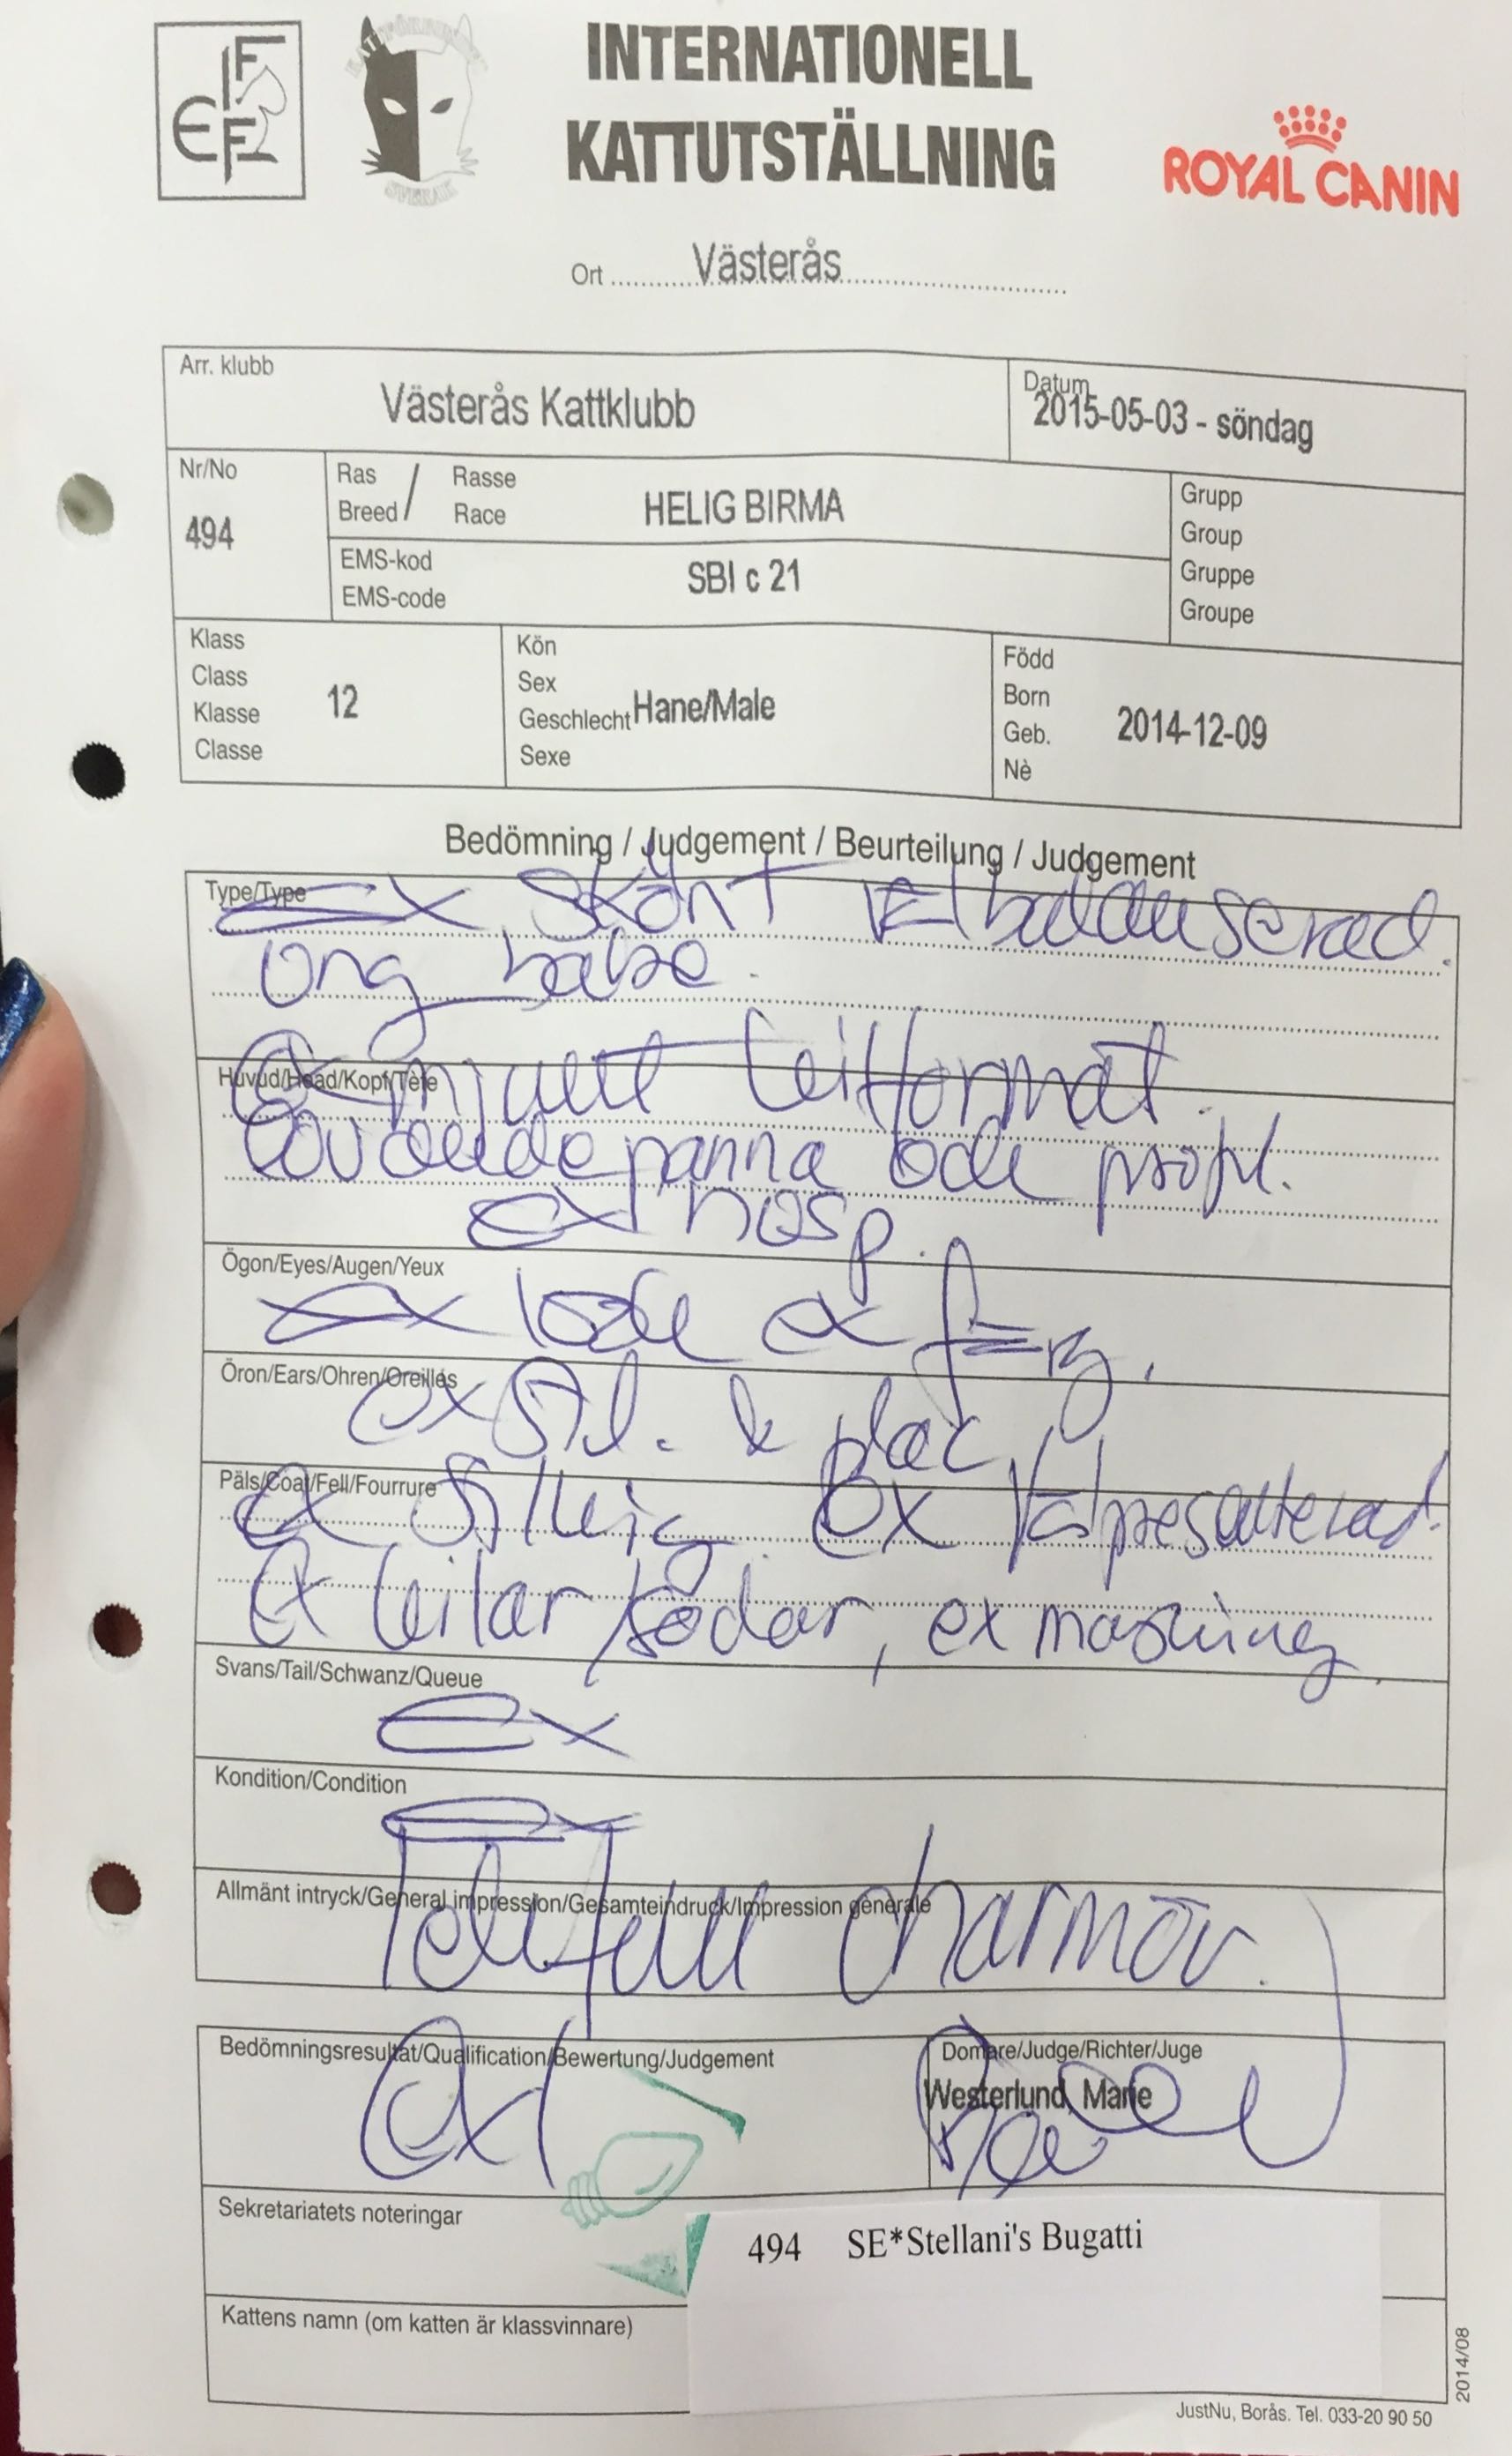 FIFE
SVERAK
INTERNATIONELL
KATTUTSTÄLLNING
ROYAL CANIN
Ort Västerås
Arr. klubb
Västerås Kattklubb
Datum
2015-05-03 - söndag
Nr/No
494
Ras / Rasse
Breed / Race
HELIG BIRMA
EMS-kod
EMS-code
SBI c 21
Grupp
Group
Gruppe
Groupe
Klass
Class
Klasse
Classe
12
Kön
Sex
Geschlecht
Sexe
Hane/Male
Född
Born
Geb.
Nè
2014-12-09
Bedömning / Judgement / Beurteilung / Judgement
Type/Type
Ex skönt välbalanserad.
ung
Huvud/Head/Kopf/Tète
Ex mjuvt
lovande panna och profil.
ex hosp.
Ögon/Eyes/Augen/Yeux
Ex
färg.
Öron/Ears/Ohren/Oreillés
ex stl. & plac
Päls/Coat/Fell/Fourrure
Ex silkig. Ex välpresenterad.
Ex, ex maskning.
Svans/Tail/Schwanz/Queue
Ex
Kondition/Condition
Ex
Allmänt intryck/General impression/Gesamteindruck/Impression générale
Talfull charmör.
Bedömningsresultat/Qualification/Bewertung/Judgement
Ex 1
Domare/Judge/Richter/Juge
Westerlund, Marie
Sekretariatets noteringar
494 SE*Stellani's Bugatti
Kattens namn (om katten är klassvinnare)
2014/08
JustNu, Borås. Tel. 033-20 90 50